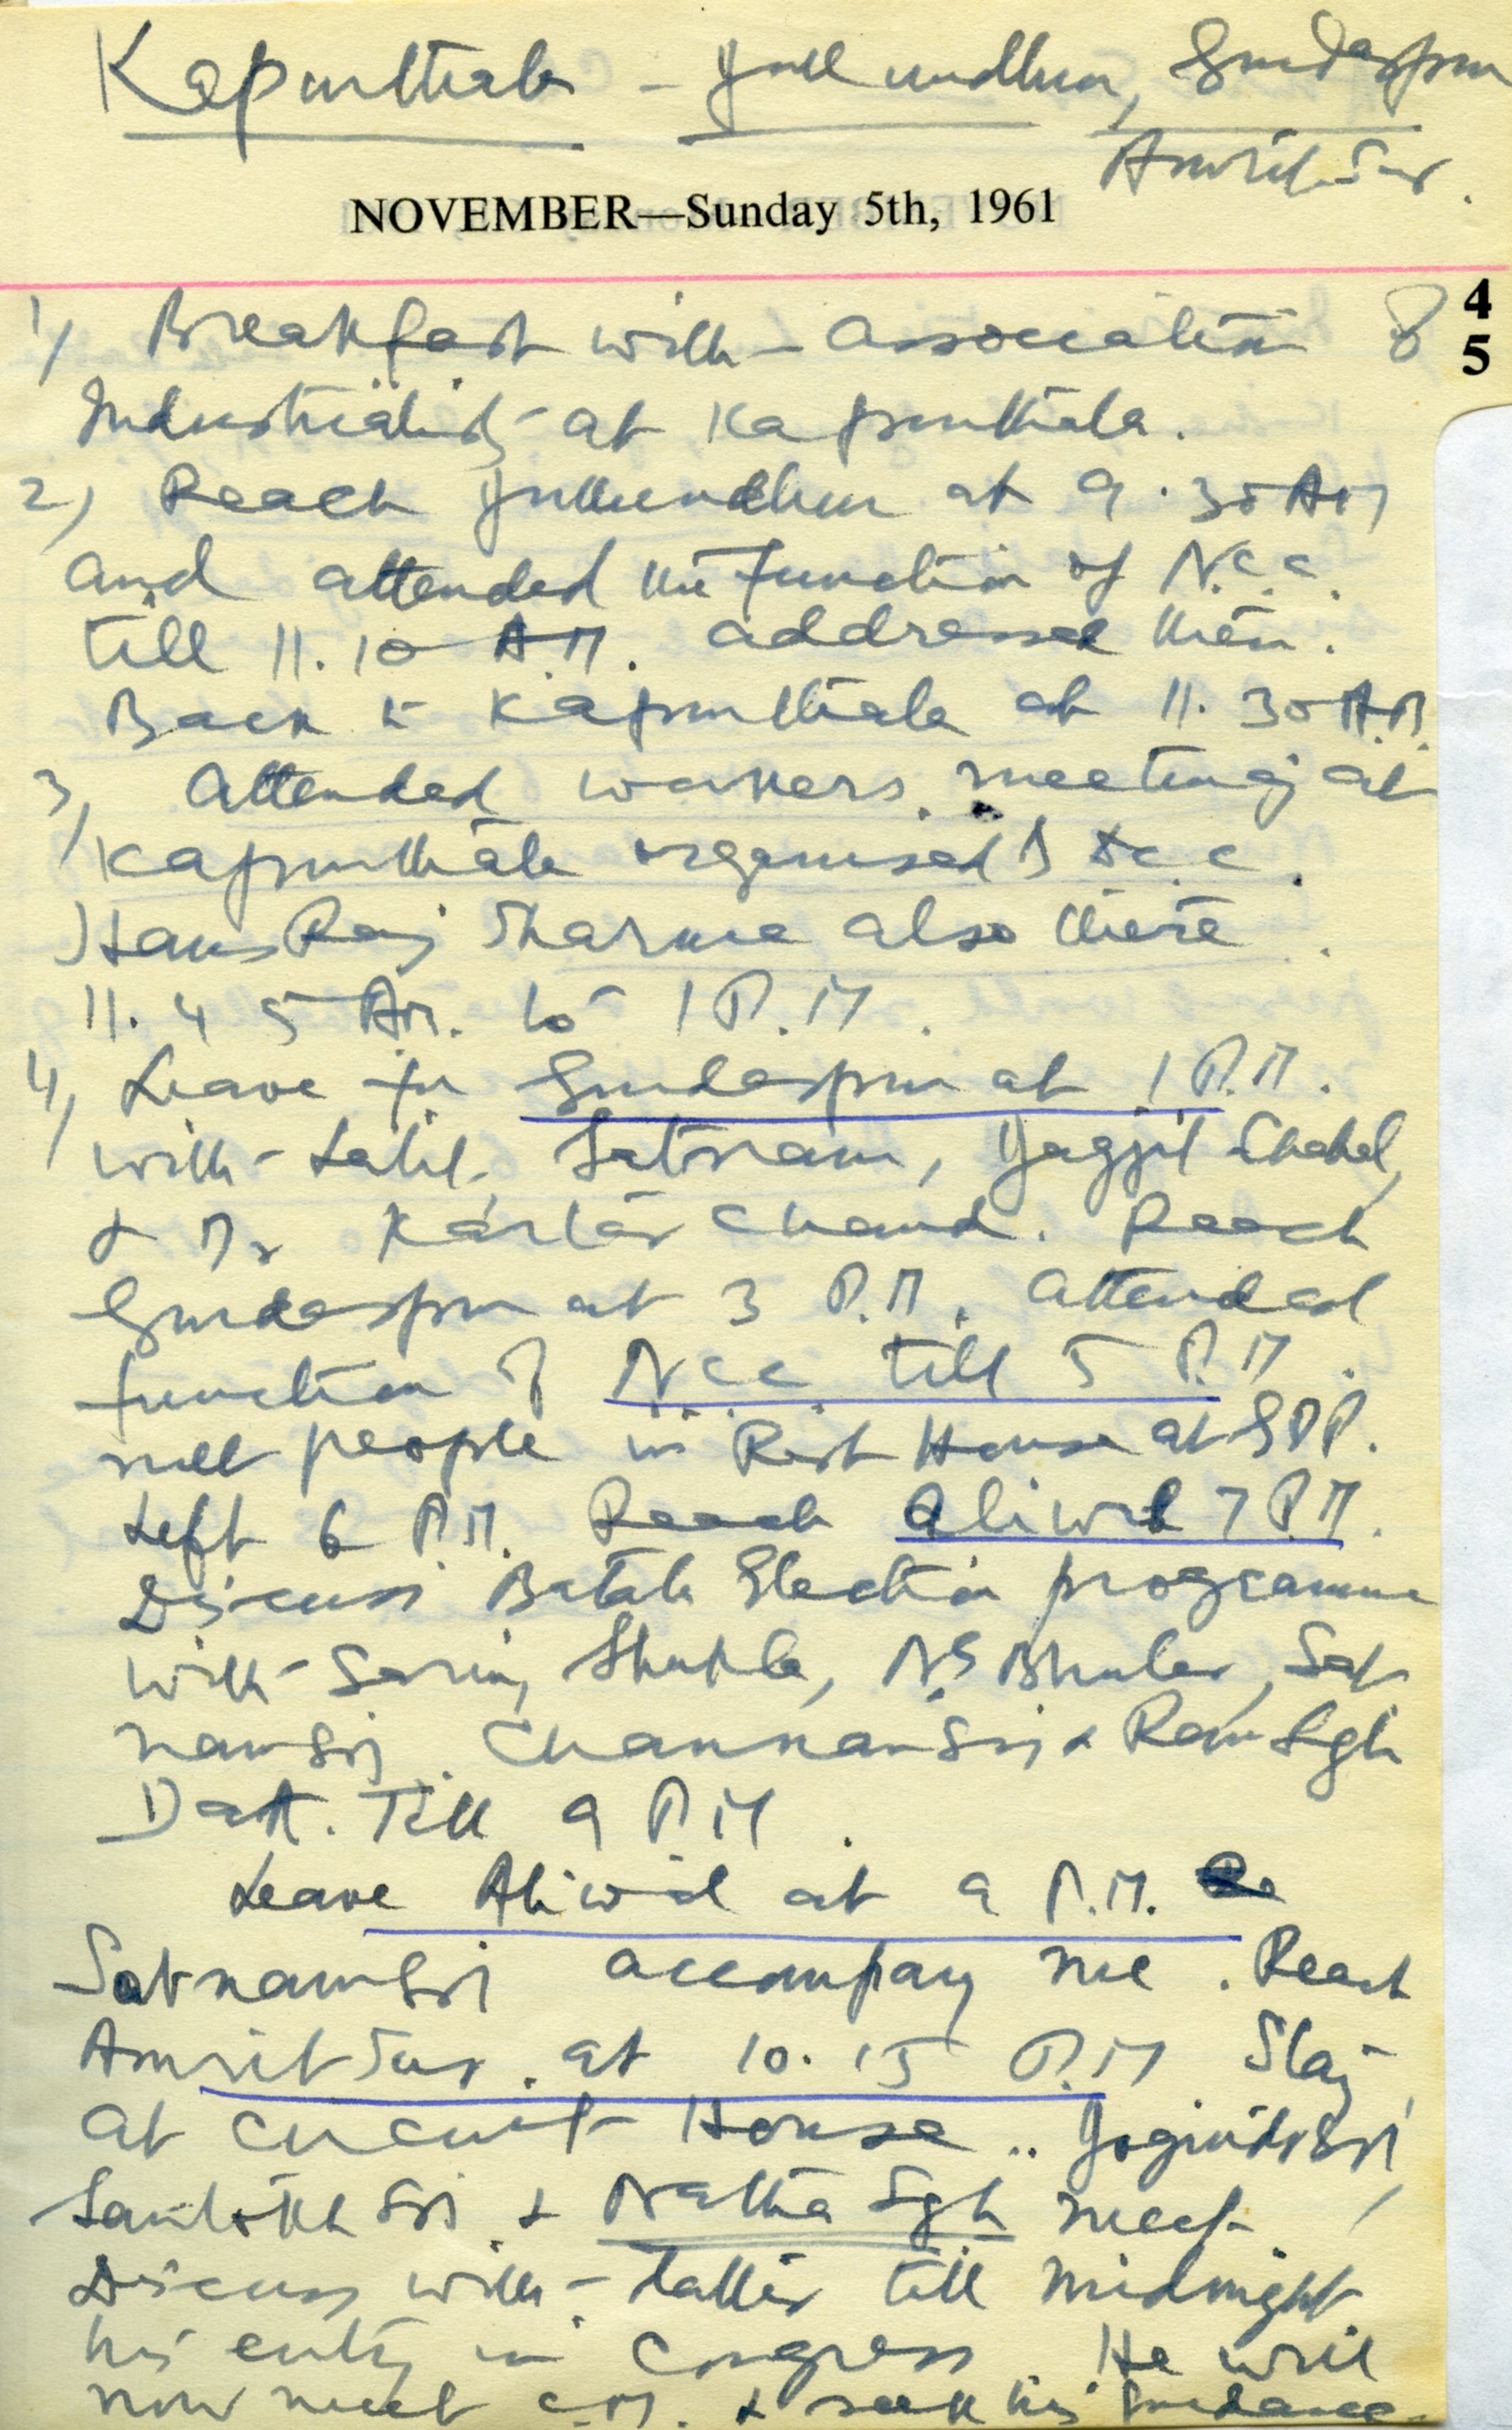 Kapurthala - Jullundhur, Gurdaspur
Amritsar.
NOVEMBER—Sunday 5th, 1961
4
5
1) Breakfast with Association of
Industrialists at Kapurthala.
2) Reach Jullundhur at 9.30 AM
and attended the function of N.C.C.
till 11.10 A.M. addressed them.
Back to Kapurthala at 11.30 A.M.
3) Attended workers meeting at
Kapurthala organised by D.C.C.
Hans Raj Sharma also there.
11.45 AM. to 1 P.M.
4) Leave for Gurdaspur at 1 P.M.
with Lalit, Satnam, Jagjit Chahal,
& Dr Kartar Chand. Reach
Gurdaspur at 3 P.M. attended
function of NCC till 5 P.M.
met people in Rest House at GDP.
Left 6 P.M. Reach Aliwal 7 P.M.
Discuss Batala Election programme
with Sarin, Shukla, NS Bhuler, Sat
nam Sgh. Channan Sgh & Ram Sgh
Datt. Till 9 P.M.
Leave Aliwal at 9 P.M.
Satnam Sgh accompany me. Reach
Amritsar. at 10.15 P.M. Stay
at Circuit House.. Joginder Sgh,
Santokh Sgh & Natha Sgh meet.
Discuss with latter till midnight
his entry in Congress. He will
now meet C.M. & seek his guidance.